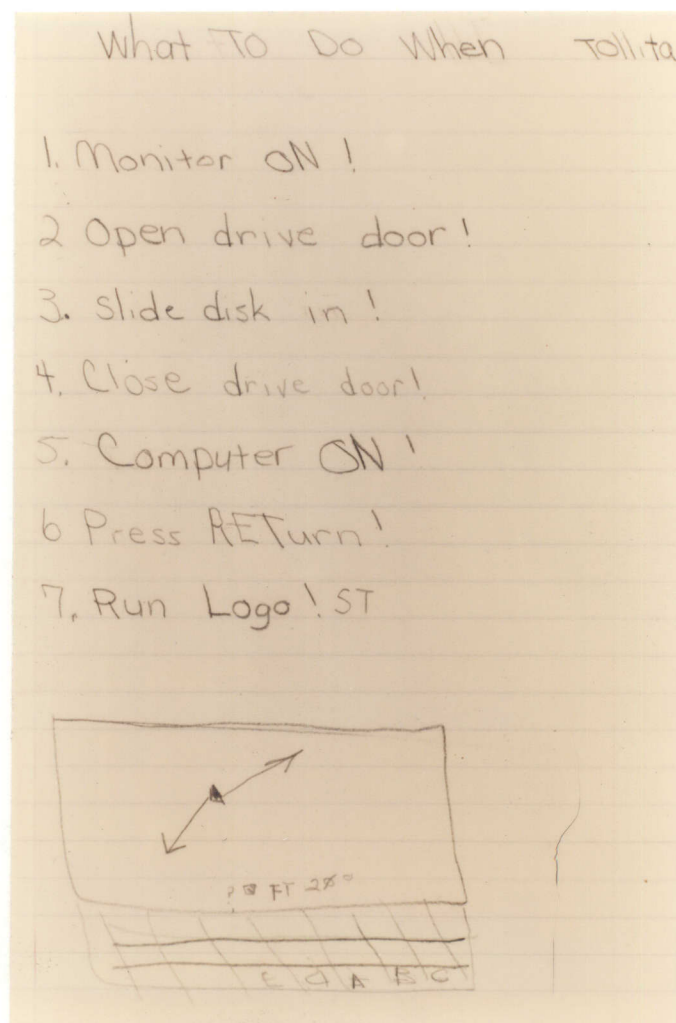 What To Do When Tollita
1. Monitor ON !
2 Open drive door!
3. Slide disk in !
4. Close drive door!
5. Computer ON !
6 Press RETurn!
7. Run Logo! ST
FT
A B C